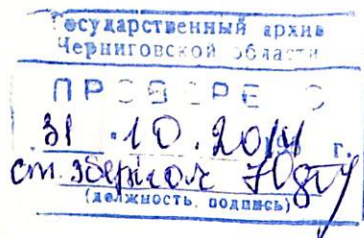 Государственный архив
Черниговской области
ПРОВЕРЕНО
31.10.2014 г.
ст. зберігач
(должность, подпись)